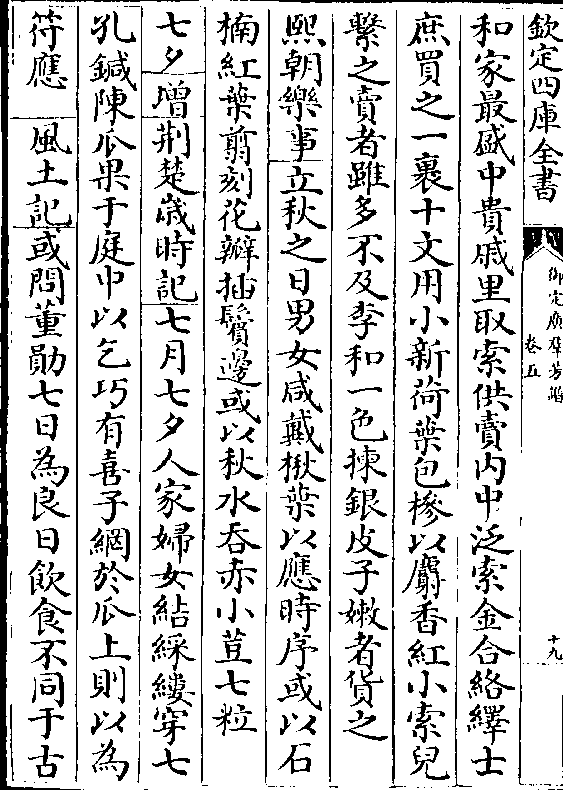 欽定四庫全書
御定廣羣芳譜
卷五
十九
和家最盛中貴戚里取索供賣內中泛索金合絡繹士
庶買之一裹十文用小新荷葉包糝以麝香紅小索兒
繫之賣者雖多不及李和一色揀銀皮子嫩者貨之
熙朝樂事立秋之日男女咸戴楸葉以應時序或以石
楠紅葉剪刻花瓣插鬢邊或以秋水吞赤小荳七粒
七夕增荆楚歲時記七月七夕人家婦女結綵縷穿七
孔鍼陳瓜果于庭中以乞巧有喜子網於瓜上則以為
符應　風土記或問董勛七日為良日飲食不同于古